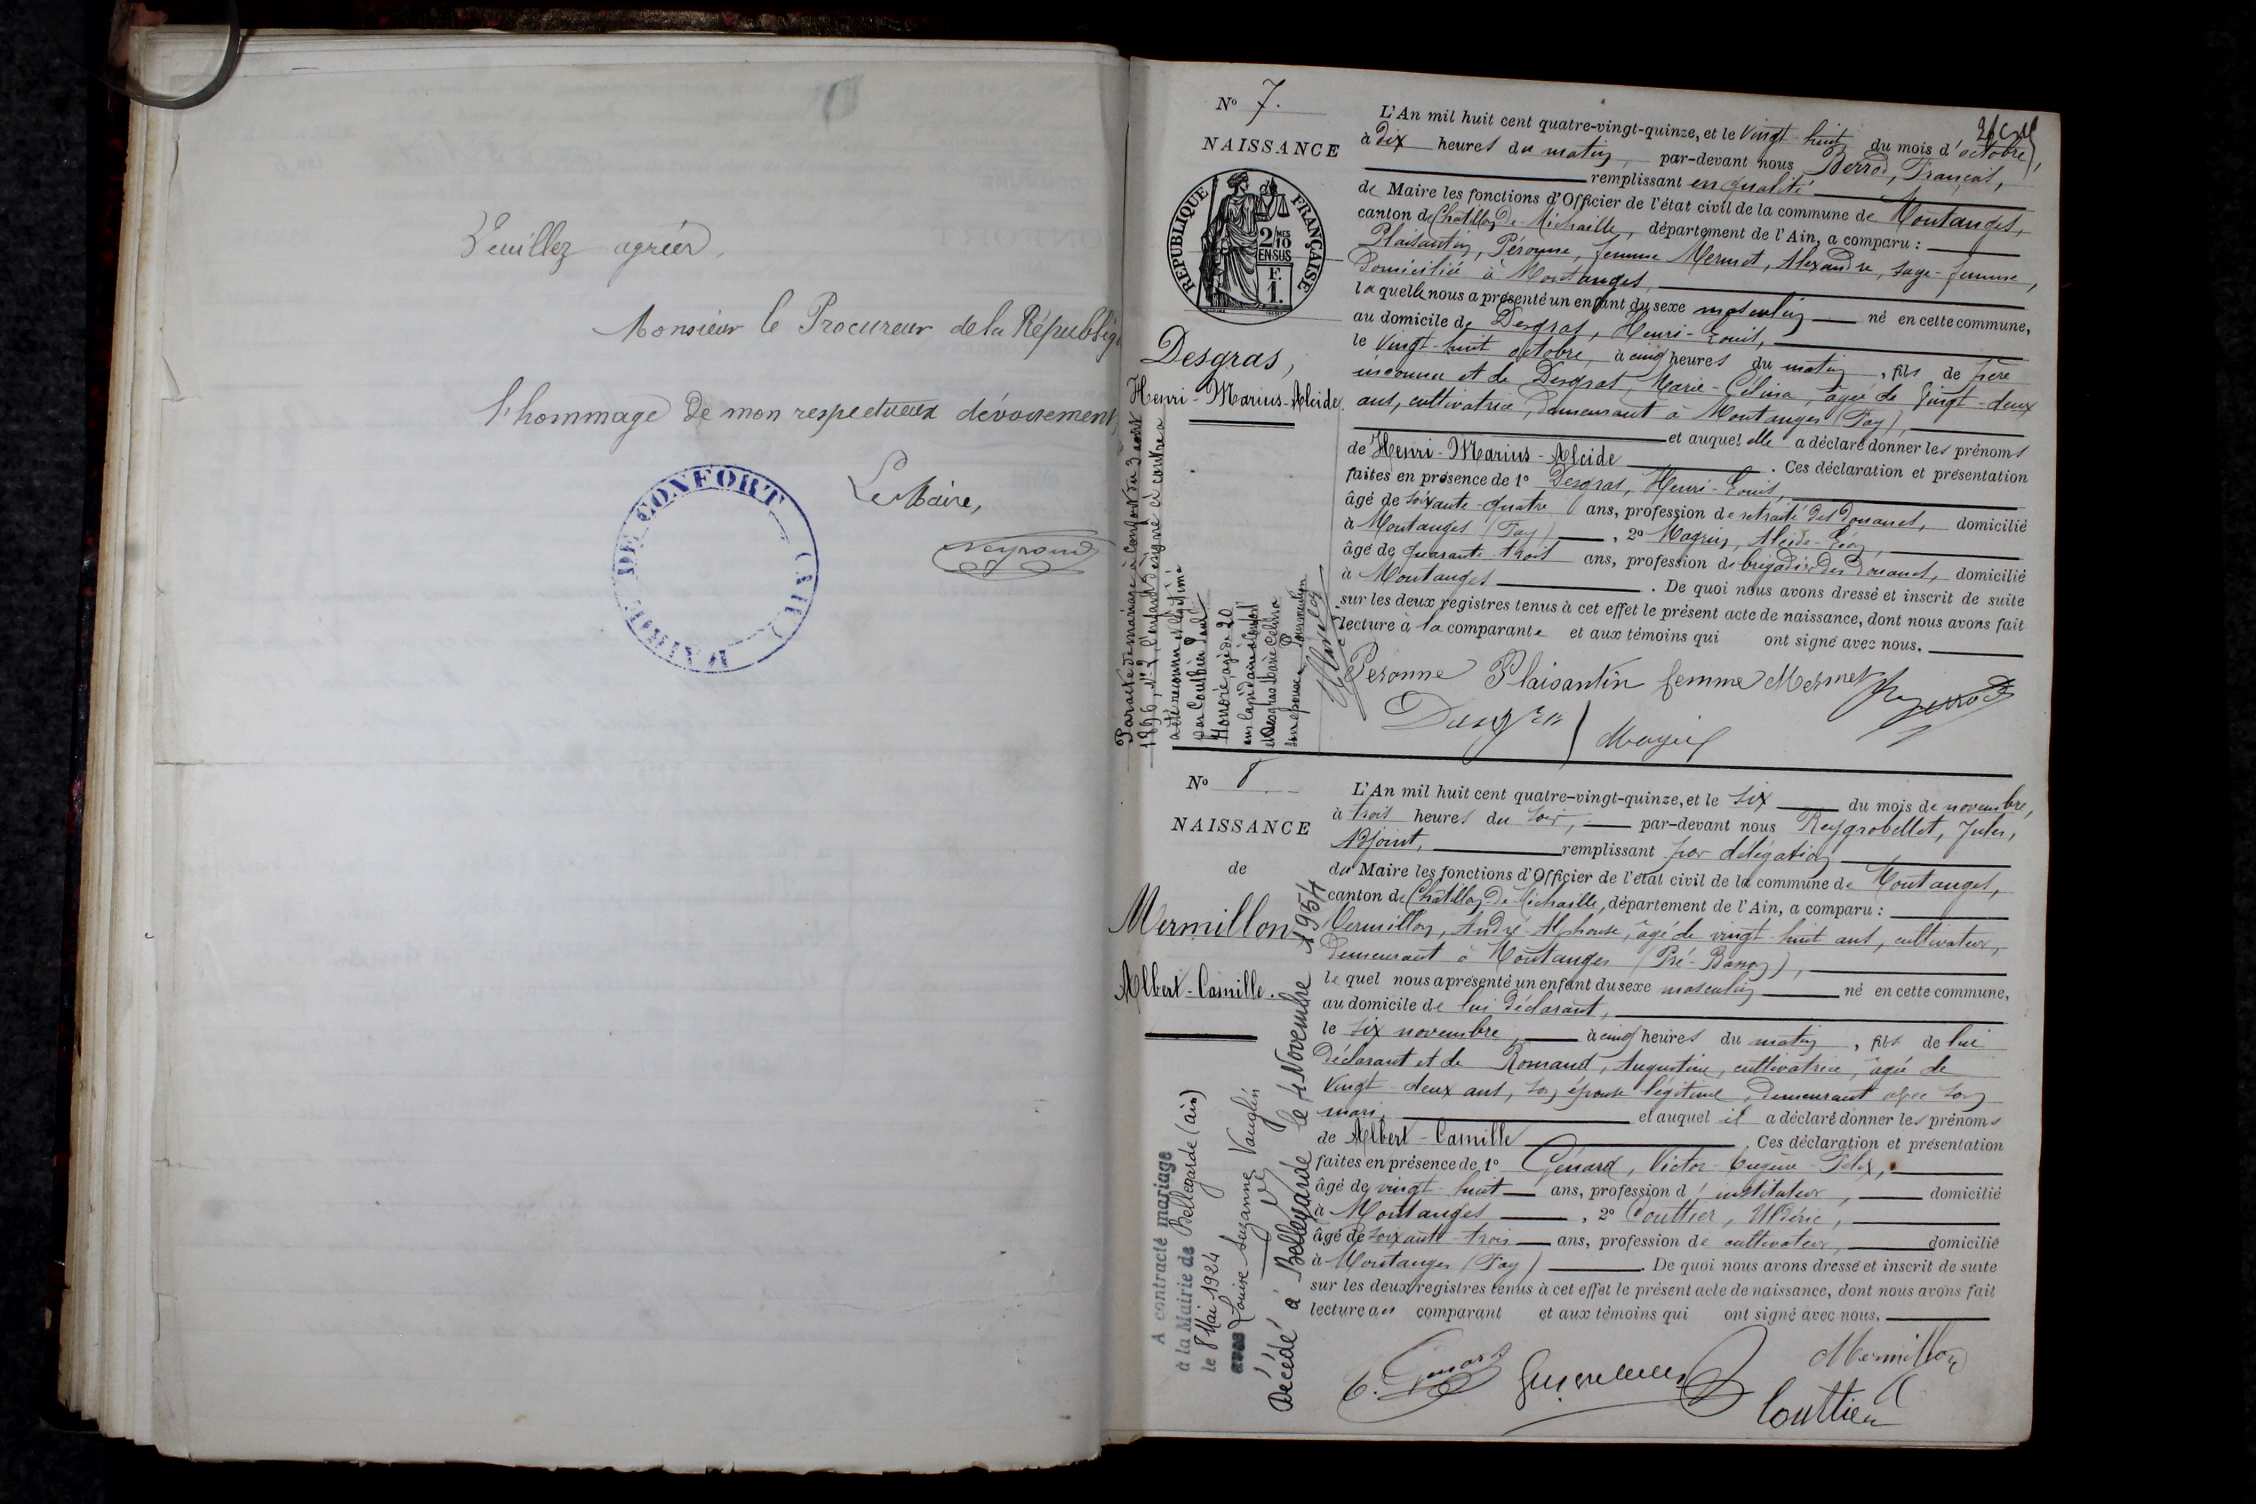 Veuillez agréer,
Monsieur le Procureur de la Républiq
l'hommage de mon respectueux dévouement,
Le Maire,
MAIRIE DE CONFORT (AIN)
N° 7.
NAISSANCE
RÉPUBLIQUE FRANÇAISE
2/10 MES
EN SUS
F.
1.
Desgras,
Henri-Marius-Alcide.
Par acte de mariage à Confort du 3 août
1896, N° 2, l'enfant désigné ci contre a
a été reconnu et légitimé
par Coutthier Paul
Honoré, agé de 20
ans lapidaire à Confort
et Desgras Marie Célina
son épouse
L'An mil huit cent quatre-vingt-quinze, et le vingt-huit du mois d'octobre,
à dix heures du matin, par-devant nous Berrod, François,
remplissant en qualité
de Maire les fonctions d'Officier de l'état civil de la commune de Montanges,
canton de Châtillon-de-Michaille, département de l'Ain, a comparu :
Plaisantin, Péronne, femme Mermet, Alexandre, sage-femme,
domiciliée à Montanges,
laquelle nous a présenté un enfant du sexe masculin né en cette commune,
au domicile de Desgras, Henri-Louis,
le vingt-huit octobre, à cinq heures du matin, fils de père
inconnu et de Desgras, Marie-Célina, âgée de vingt-deux
ans, cultivatrice, demeurant à Montanges (Fay),
et auquel elle a déclaré donner les prénoms
de Henri-Marius-Alcide. Ces déclaration et présentation
faites en présence de 1° Desgras, Henri-Louis,
âgé de soixante-quatre ans, profession de retraité des Douanes, domicilié
à Montanges (Fay), 2° Magnin, Alcide-Léon,
âgé de quarante-trois ans, profession de brigadier des Douanes, domicilié
à Montanges. De quoi nous avons dressé et inscrit de suite
sur les deux registres tenus à cet effet le présent acte de naissance, dont nous avons fait
lecture à la comparante et aux témoins qui ont signé avec nous.
Péronne Plaisantin femme Mermet
N° 8
NAISSANCE
de
Mermillon
Albert-Camille.
A contracté mariage
à la Mairie de Bellegarde (ain)
le 8 Mai 1924
avec Louise Suzanne Vauglin
Décédé à Bellegarde le 4 Novembre 1954
L'An mil huit cent quatre-vingt-quinze, et le six du mois de novembre,
à trois heures du soir, par-devant nous Reygrobellet, Jules,
Adjoint, remplissant par délégation
du Maire les fonctions d'Officier de l'état civil de la commune de Montanges,
canton de Châtillon-de-Michaille, département de l'Ain, a comparu :
Mermillon, André-Alphonse, âgé de vingt-huit ans, cultivateur,
demeurant à Montanges
lequel nous a présenté un enfant du sexe masculin né en cette commune,
au domicile de lui déclarant,
le six novembre, à cinq heures du matin, fils de lui
déclarant et de Romand, Augustine, cultivatrice, âgée de
vingt-deux ans, son épouse légitime, demeurant avec son
mari, et auquel il a déclaré donner les prénoms
de Albert-Camille. Ces déclaration et présentation
faites en présence de 1° Génard, Victor-Eugène-Félix,
âgé de vingt-huit ans, profession d'instituteur, domicilié
à Montanges, 2° Couttier, Uldéric,
âgé de soixante-trois ans, profession de cultivateur, domicilié
à Montanges (Fay). De quoi nous avons dressé et inscrit de suite
sur les deux registres tenus à cet effet le présent acte de naissance, dont nous avons fait
lecture au comparant et aux témoins qui ont signé avec nous.
Mermillon
Couttier